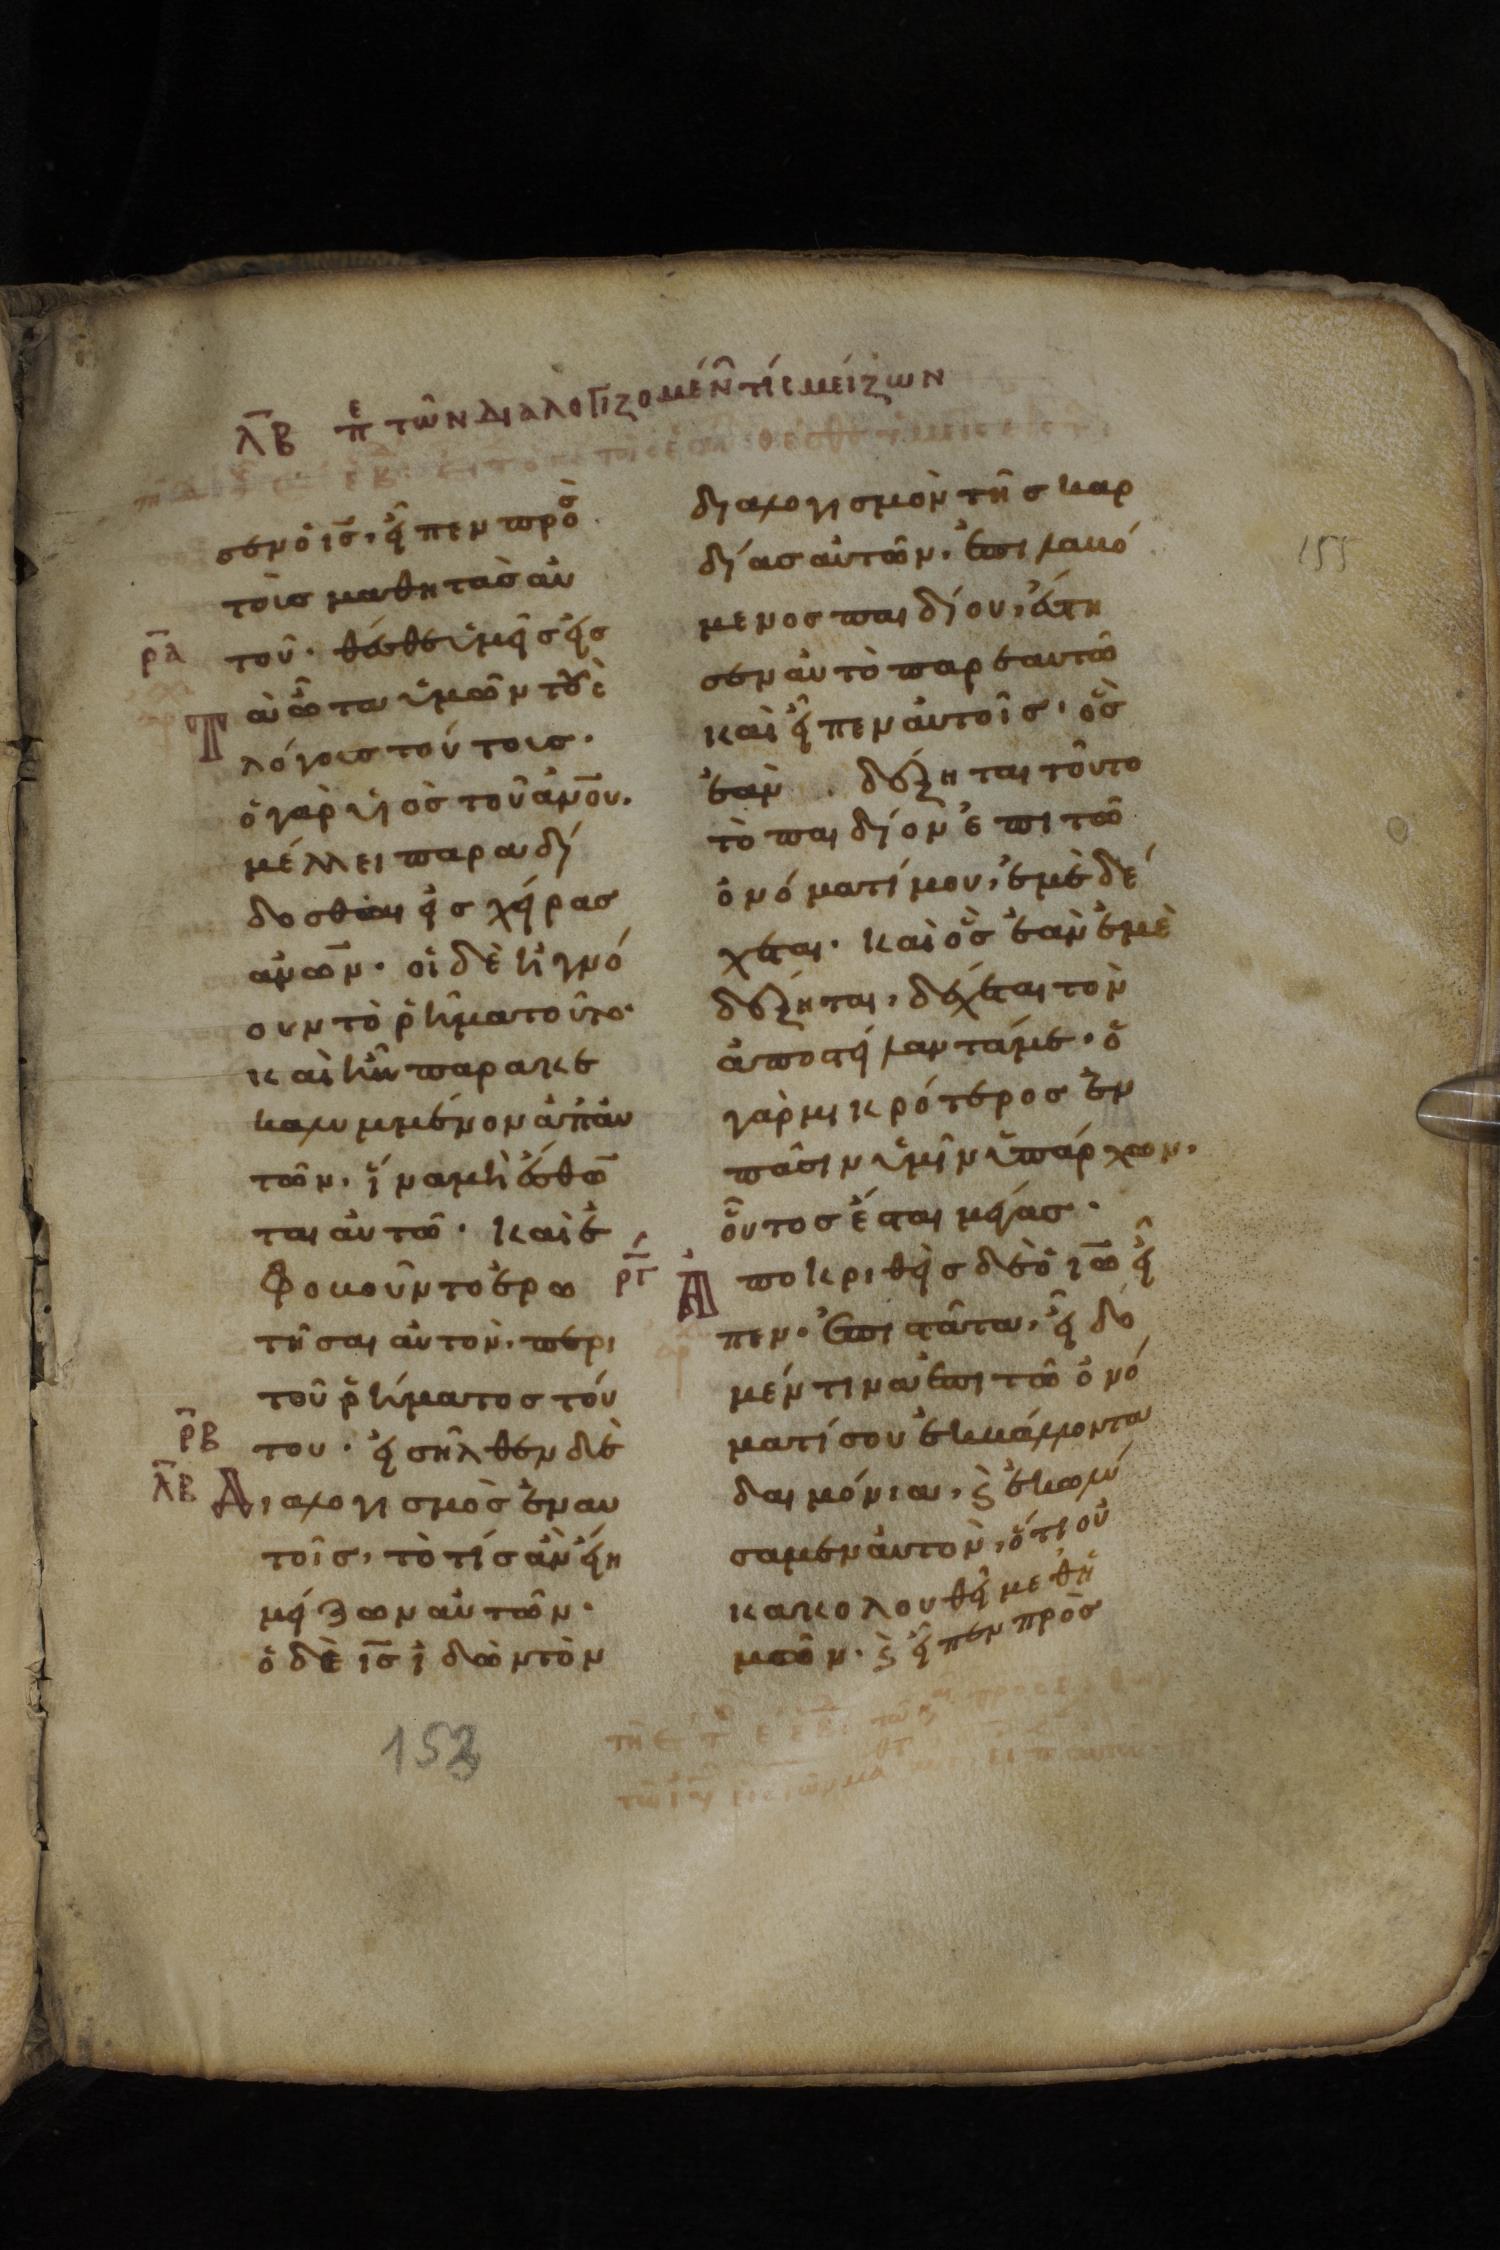 λ̅β̅ πε τῶν διαλογιζομέν̑ τίς μείζων
σεν ὁ ι̅ς̅, εἶπεν πρὸς
τοῖς μαθητὰς αὐ
ρ̅α̅ τοῦ· θέσθε ὑμεῖς εἰς
τὰ ὦτα ὑμῶν τοὺς
λόγους τούτους·
ὁ γὰρ υἱὸς τοῦ α̅ν̅ο̅υ̅.
μέλλει παραδί
δοσθαι εἰς χεῖρας
α̅ν̅ω̅ν̅· οἱ δὲ ἠγνό
ουν τὸ ῥῆμα τοῦτο·
καὶ ἦν παρακε
καλυμμένον ἀπ' αὐ
τῶν, ἵνα μὴ αἴσθων
ται αὐτῶ· καὶ ἐ
φοβοῦντο ἐρω
τῆσαι αὐτὸν, περὶ
τοῦ ῥήματος τού
ρ̅β̅ του· εἰσῆλθεν δὲ
λ̅β̅ Διαλογισμὸς ἐν αυ
τοῖς, τὸ τίς ἂν εἴη
μείζων αὐτῶν·
ὁ δὲ ι̅ς̅ ἰδὼν τὸν
διαλογισμὸν τῆς καρ
δίας αὐτῶν, ἐπιλαβό
μενος παιδίου, ἔστη
σεν αὐτὸ παρ' ἑαυτῶ
καὶ εἶπεν αὐτοῖς· ὃς
ἐὰν δέξηται τοῦτο
τὸ παιδίον ἐπὶ τῶ
ὀνόματί μου, ἐμὲ δέ
χεται· καὶ ὃς ἐὰν ἐμὲ
δέξηται, δέχεται τὸν
ἀποστείλαντά με· ὁ
γὰρ μικρότερος ἐν
πᾶσιν ὑμῖν ὑπάρχων.
οὗτος ἔσται μέγας·
ρ̅γ̅ Ἀποκριθεὶς δὲ ὁ ι̅ω̅ εἶ
πεν· ἐπιστᾶτα, εἴδο
μέν τινα ἐπὶ τῶ ὀνό
ματί σου ἐκβάλλοντα
δαιμόνια, ϗ ἐκωλύ
σαμεν αὐτὸν, ὅτι οὐ
κ ἀκολουθεῖ μεθ' ἡ
μῶν· ϗ εἶπεν πρὸς
155
153